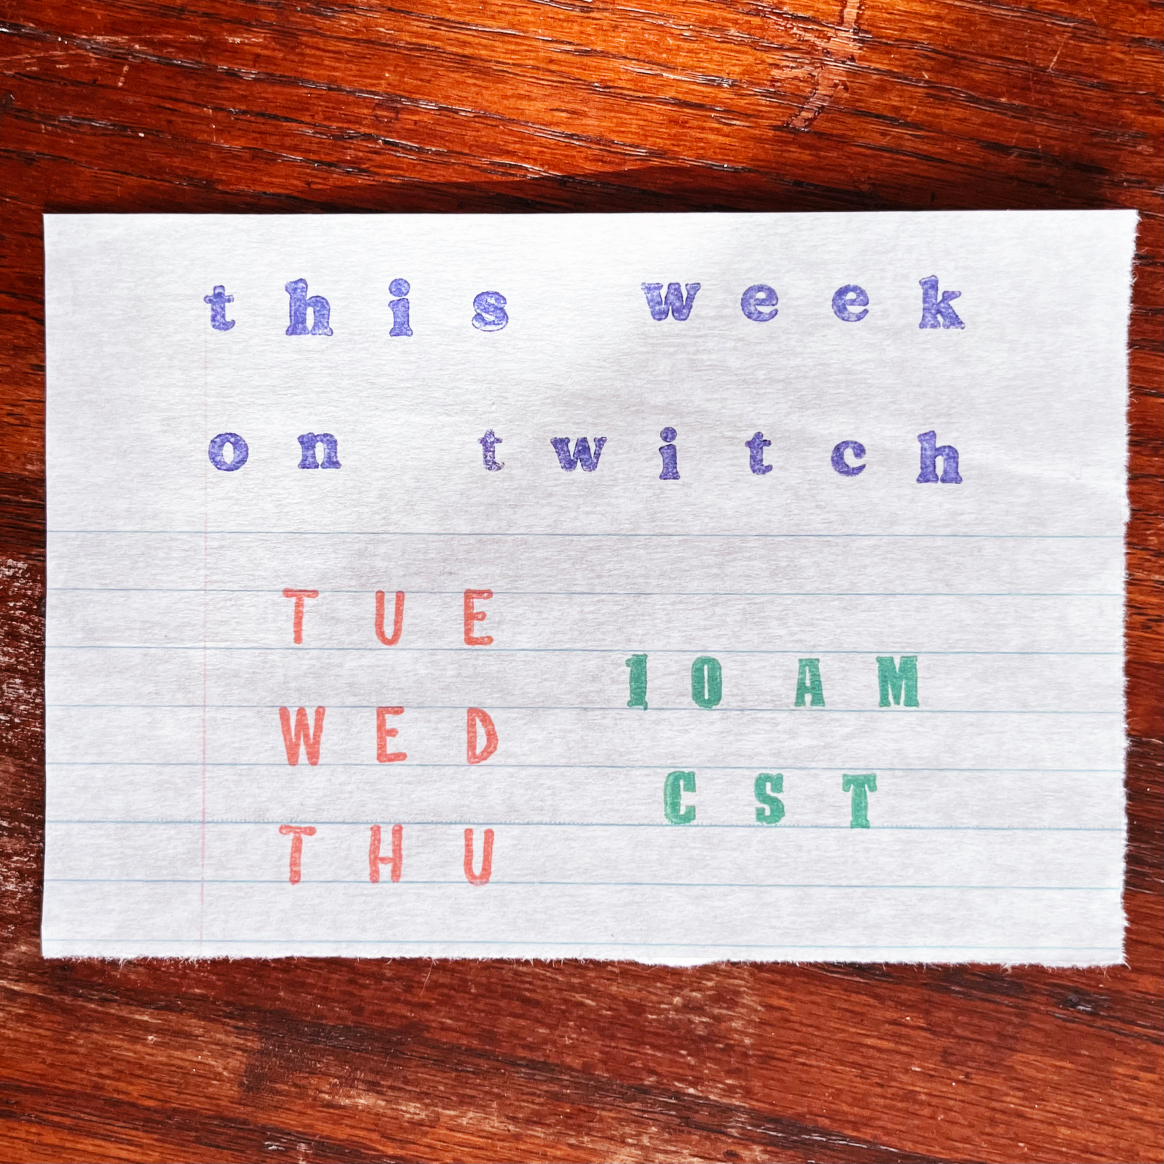 this week
on twitch
TUE
WED
THU
10 AM
CST